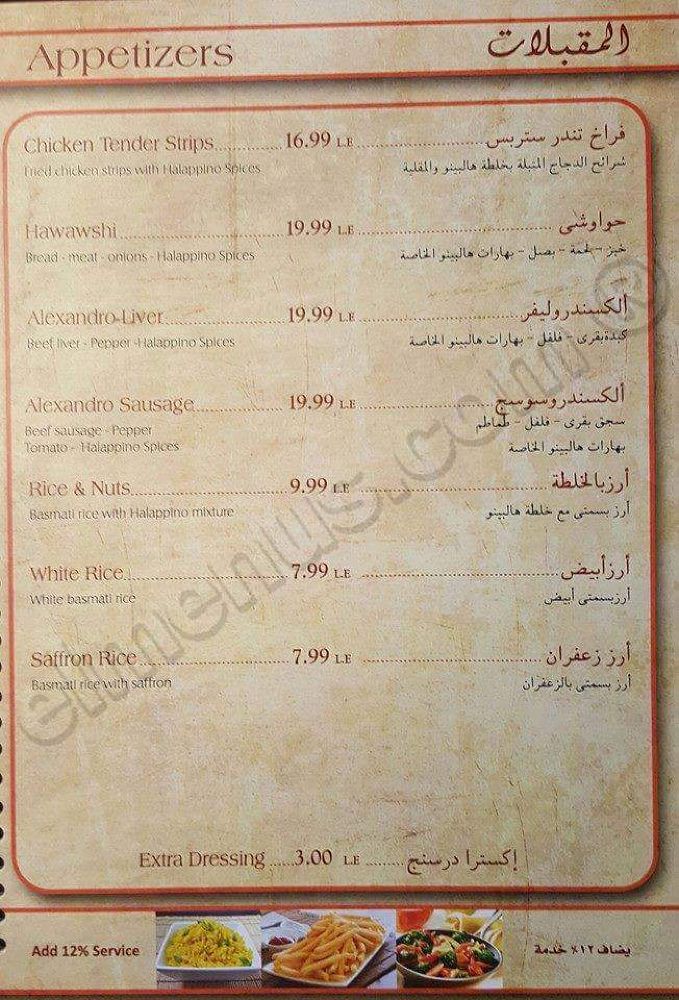 Appetizers المقبلات
Chicken Tender Strips 16.99 L.E فراخ تندر ستربس
Fried chicken strips with Halappino Spices شرائح الدجاج المتبلة بخلطة هالبينو والمقلية
Hawawshi 19.99 L.E حواوشى
Bread - meat - onions - Halappino Spices خبز - لحمة - بصل - بهارات هالبينو الخاصة
Alexandro-Liver 19.99 L.E ألكسندروليفر
Beef liver - Pepper -Halappino Spices كبدةبقرى - فلفل - بهارات هالبينو الخاصة
Alexandro Sausage 19.99 L.E ألكسندروسوسج
Beef sausage - Pepper سجق بقرى - فلفل - طماطم
Tomato - Halappino Spices بهارات هالبينو الخاصة
Rice & Nuts 9.99 L.E أرزبالخلطة
Basmati rice with Halappino mixture أرز بسمتى مع خلطة هالبينو
White Rice 7.99 L.E أرزأبيض
White basmati rice أرزبسمتى أبيض
Saffron Rice 7.99 L.E أرز زعفران
Basmati rice with saffron أرز بسمتى بالزعفران
Extra Dressing 3.00 L.E إكسترا درسنج
Add 12% Service يضاف ١٢٪ خدمة
elmenus.com ®